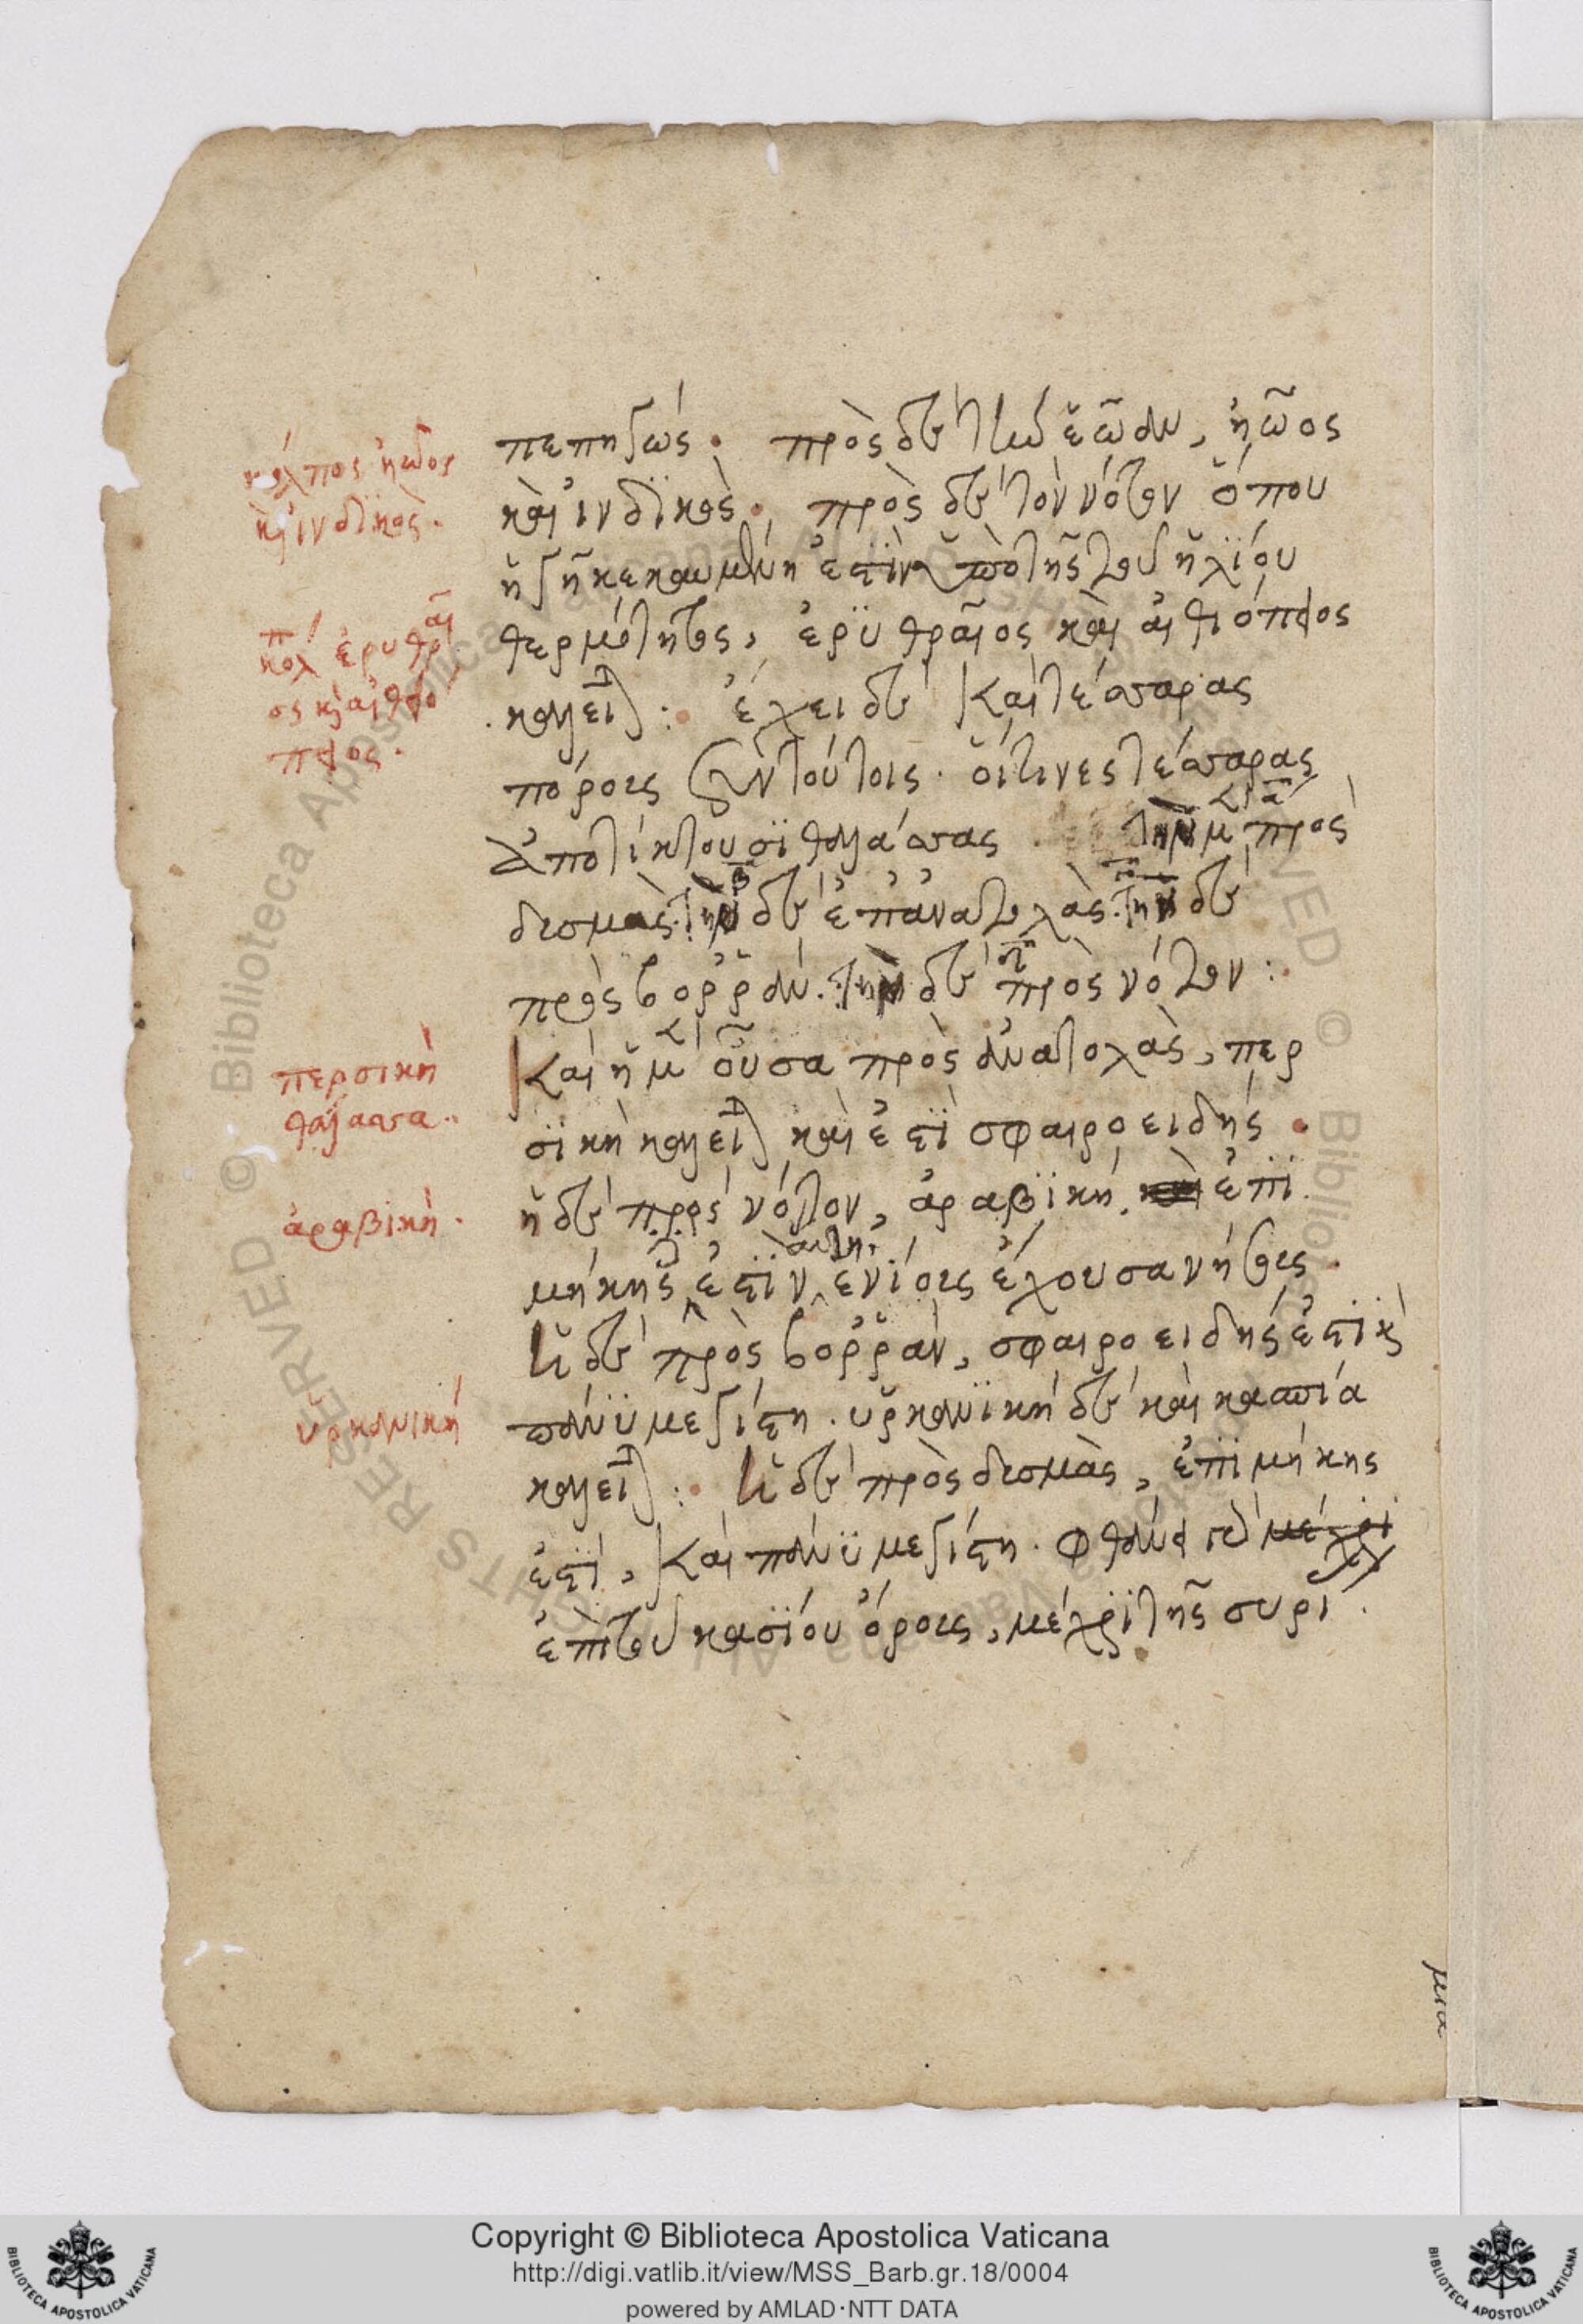 κόλπος ἠῶος
καὶ ἰνδϊκὸς.
κολπ ἐρυθραῖ
ος καὶ αἰθϊο
πϊος.
περσικὴ
θάλασσα..
ἀραβϊκὴ.
ὑρκανικὴ
πεπηγώς. πρὸς δὲ τὴν ἑῶαν, ἠῶος
καὶ ἰνδϊκὸς. πρὸς δὲ τὸν νότον ὅπου
ἡ γῆ κεκαυμένη ἐστὶν ὑπὸ τῆς τοῦ ἡλϊου
θερμότητος, ἐρϋθραῖος καὶ αἰθιόπιος
καλεῖται: ἔχει δὲ καὶ τέσσαρας
πόρους σὺν τούτοις. οἵτινες τέσσαρας
ἀποτίκτουσϊ θαλάσσας μίαν πρὸς
δυσμὰς. δὲ ἐπ' ἀνατολὰς. δὲ
πρὸς βορρᾶν. δὲ πρὸς νότον:
Καὶ ἡ μία οὖσα πρὸς ἀνατολὰς, περ
σϊκὴ καλεῖται καὶ ἔστϊ σφαιροειδής.
ἡ δὲ πρὸς νότον, ἀραβϊκή. ἐπϊ
μήκης ἐστϊν αὕτη. ἐνίους ἔχουσα νήσους.
Ἡ δὲ πρὸς βορρᾶν, σφαιροειδής ἐστϊ καὶ
πάνϋ μεγίστη. ὑρκανϊκὴ δὲ καὶ κασπία
καλεῖται: Ἡ δὲ πρὸς δυσμὰς, ἐπϊμήκης
ἐστϊ, Καὶ πάνϋ μεγίστη. φθάνει γὰρ μέχρι
ἐπὶ τοῦ κασϊου ὄρους, μέχρϊ τῆς συρι.
μια
Copyright © Biblioteca Apostolica Vaticana
http://digi.vatlib.it/view/MSS_Barb.gr.18/0004
powered by AMLAD·NTT DATA